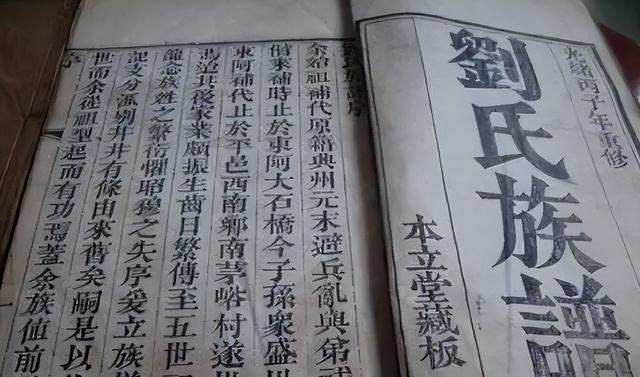 光緒丙子年重修
劉氏族譜
本立堂藏板
劉氏族譜序
余始祖補代原籍興州元末避兵亂與弟
偕來補時止於東阿大石橋今子孫眾盛
東阿補代止於平邑西南鄉南茅峪村遂
焉治其後家業漸振生齒日繁傳至五世
龍念族姓之繁衍懼昭穆之失序爰立族
記支分派別井井有條由來舊矣嗣是以
世而余從祖型起而有功焉蓋余族值前